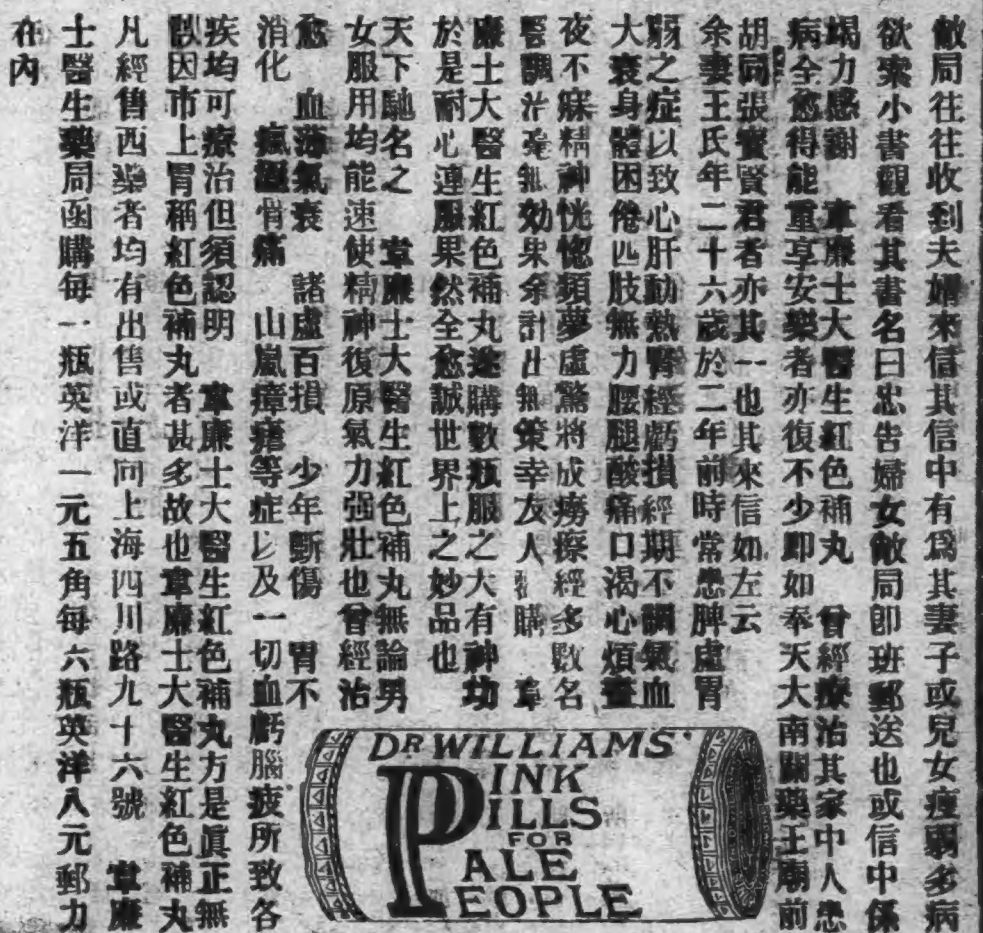 敝局往往收到夫婦來信其信中有爲其妻子或兒女瘦弱多病
欲索小書觀看其書名曰忠告婦女敝局卽班郵送也或信中係
竭力感謝 韋廉士大醫生紅色補丸 曾經療治其家中人患
病全愈得能重享安樂者亦復不少卽如奉天大南關藥王廟前
胡同張寳賢君者亦其一也其來信如左云
余妻王氏年二十六歲於二年前時常患脾虛胃
弱之症以致心肝動熱腎經虧損經期不調氣血
大衰身體困倦四肢無力腰腿酸痛口渴心煩晝
夜不寐精神恍惚頻夢虛驚將成癆瘵經多數名
醫調治毫無効果余計出無策幸友人 購 韋
廉士大醫生紅色補丸遂購數瓶服之大有神功
於是耐心連服果然全愈誠世界上之妙品也
天下馳名之 韋廉士大醫生紅色補丸無論男
女服用均能速使精神復原氣力强壯也曾經治
愈 血薄氣衰 諸虛百損 少年斲傷 胃不
消化 瘋濕骨痛 山嵐瘴瘧等症以及一切血虧腦疲所致各
疾均可療治但須認明 韋廉士大醫生紅色補丸方是眞正無
因市上冒稱紅色補丸者甚多故也韋廉士大醫生紅色補丸
凡經售西藥者均有出售或直向上海四川路九十六號 韋廉
士醫生藥局函購每一瓶英洋一元五角每六瓶英洋八元郵力
在內
DR WILLIAMS'
PINK
PILLS
FOR
PALE
PEOPLE